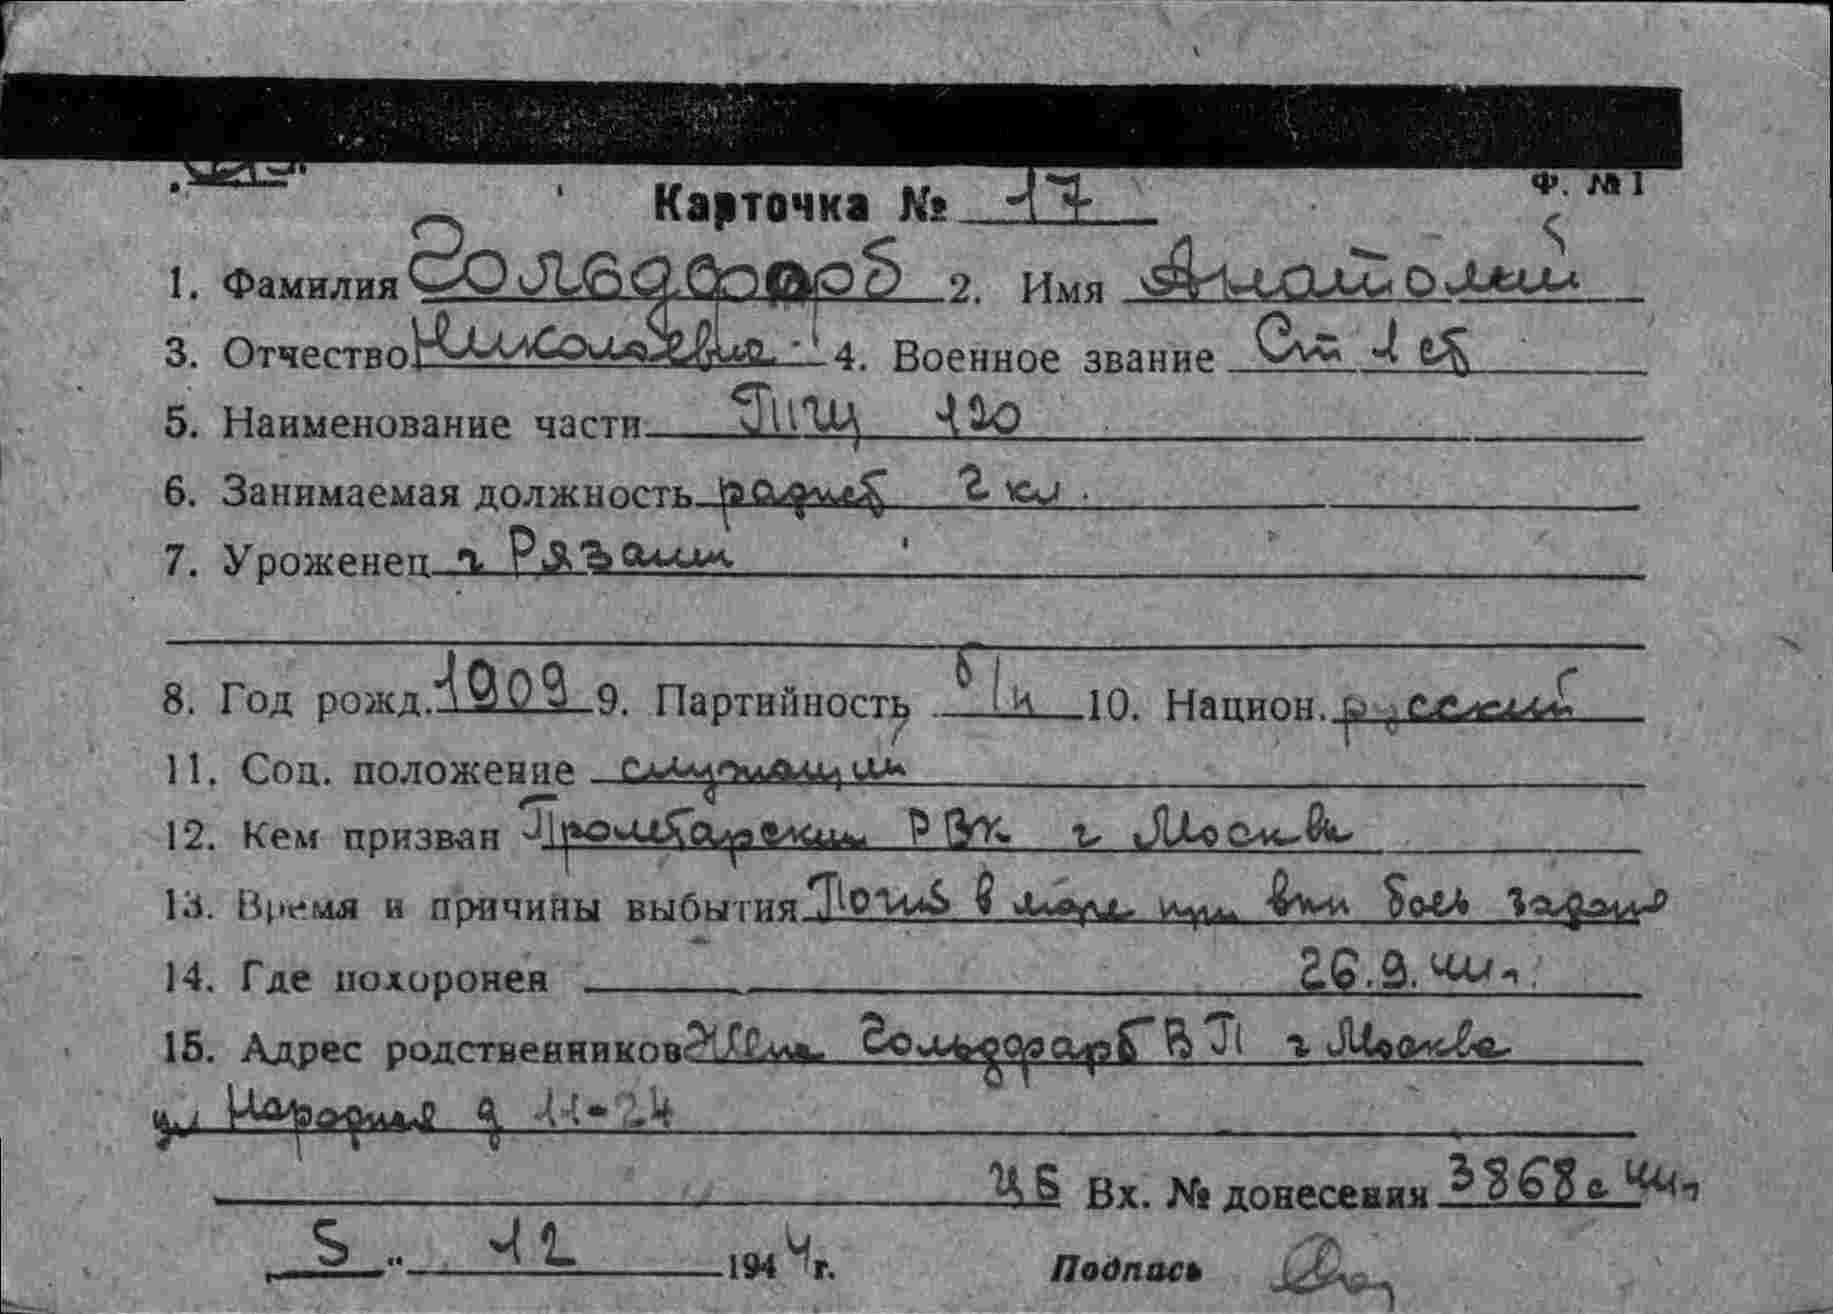 Карточка № 17 Ф. №1
1. Фамилия Гольдфарб 2. Имя Анатолий
3. Отчество Николаевич 4. Военное звание Ст 1 ст
5. Наименование части ТЩ 120
6. Занимаемая должность радист 2 кл.
7. Уроженец г Рязани
8. Год рожд. 1909 9. Партийность б/п 10. Национ. русский
11. Соц. положение служащий
12. Кем призван Пролетарским РВК г Москвы
13. Время и причины выбытия Погиб в море при вып боев задания
14. Где похоронен 26.9.44г.
15. Адрес родственников Жена Гольдфарб В П г Москва
ул Народная д 11-24
ЦБ Вх. № донесения 3868с 44г
5 " 12 1944г. Подпись